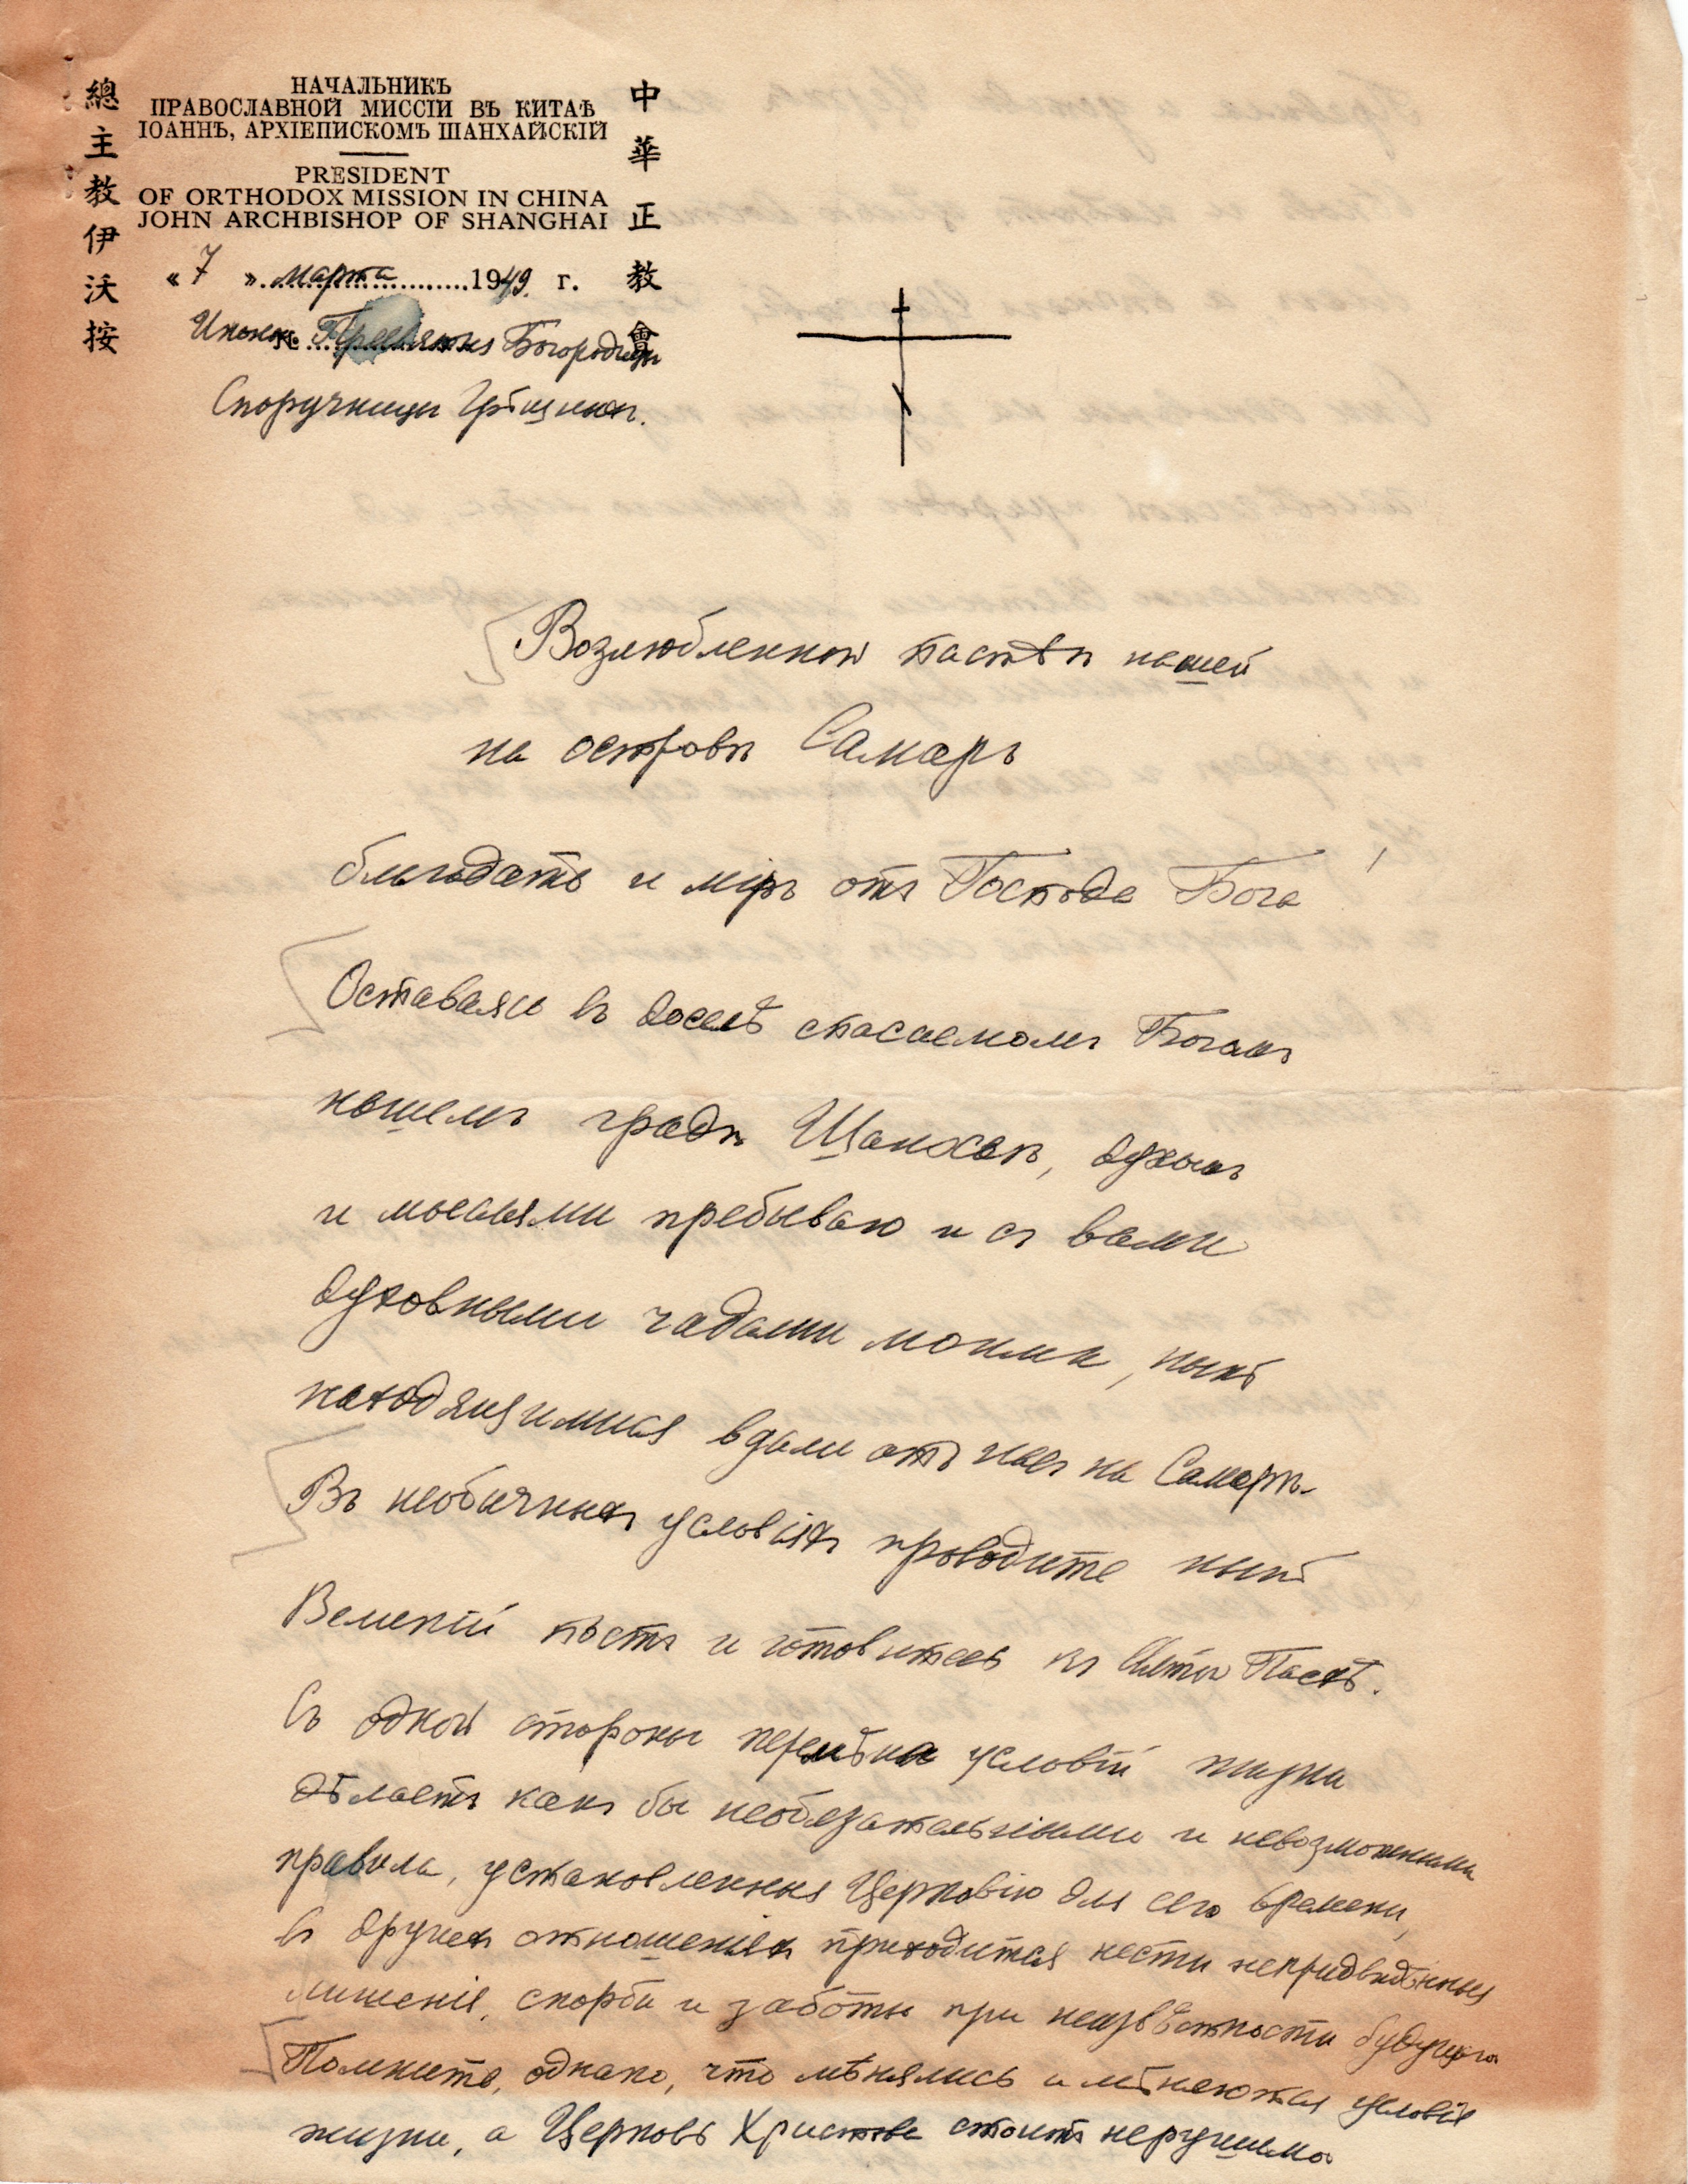 總主教伊沃按
中華正教會
НАЧАЛЬНИКЪ
ПРАВОСЛАВНОЙ МИССІИ ВЪ КИТАѢ
ІОАННЪ, АРХІЕПИСКОМЪ ШАНХАЙСКІЙ
PRESIDENT
OF ORTHODOX MISSION IN CHINA
JOHN ARCHBISHOP OF SHANGHAI
« 7 » марта 1949 г.
Иконы Пресвятыя Богородицы
Споручницы Грѣшныхъ.
Возлюбленной паствѣ нашей
на островѣ Самаръ
благодать и міръ отъ Господа Бога!
Оставаясь въ доселѣ спасаемомъ Богомъ
нашемъ градѣ Шанхаѣ, духомъ
и мыслями пребываю и съ вами
духовными чадами моими, нынѣ
находящимися вдали отъ насъ на Самарѣ.
Въ необычныхъ условіяхъ проводите нынѣ
Великій постъ и готовитесь къ Святой Пасхѣ.
Съ одной стороны перемѣна условій жизни
дѣлаетъ какъ бы необязательными и невозможными
правила, установленныя Церковію для сего времени,
въ другихъ отношеніяхъ приходится нести непридвидѣнныя
лишенія, скорби и заботы при неизвѣстности будущаго
Помните, однако, что мѣнялись и мѣняются условія
жизни, а Церковь Христова стоитъ нерушимо